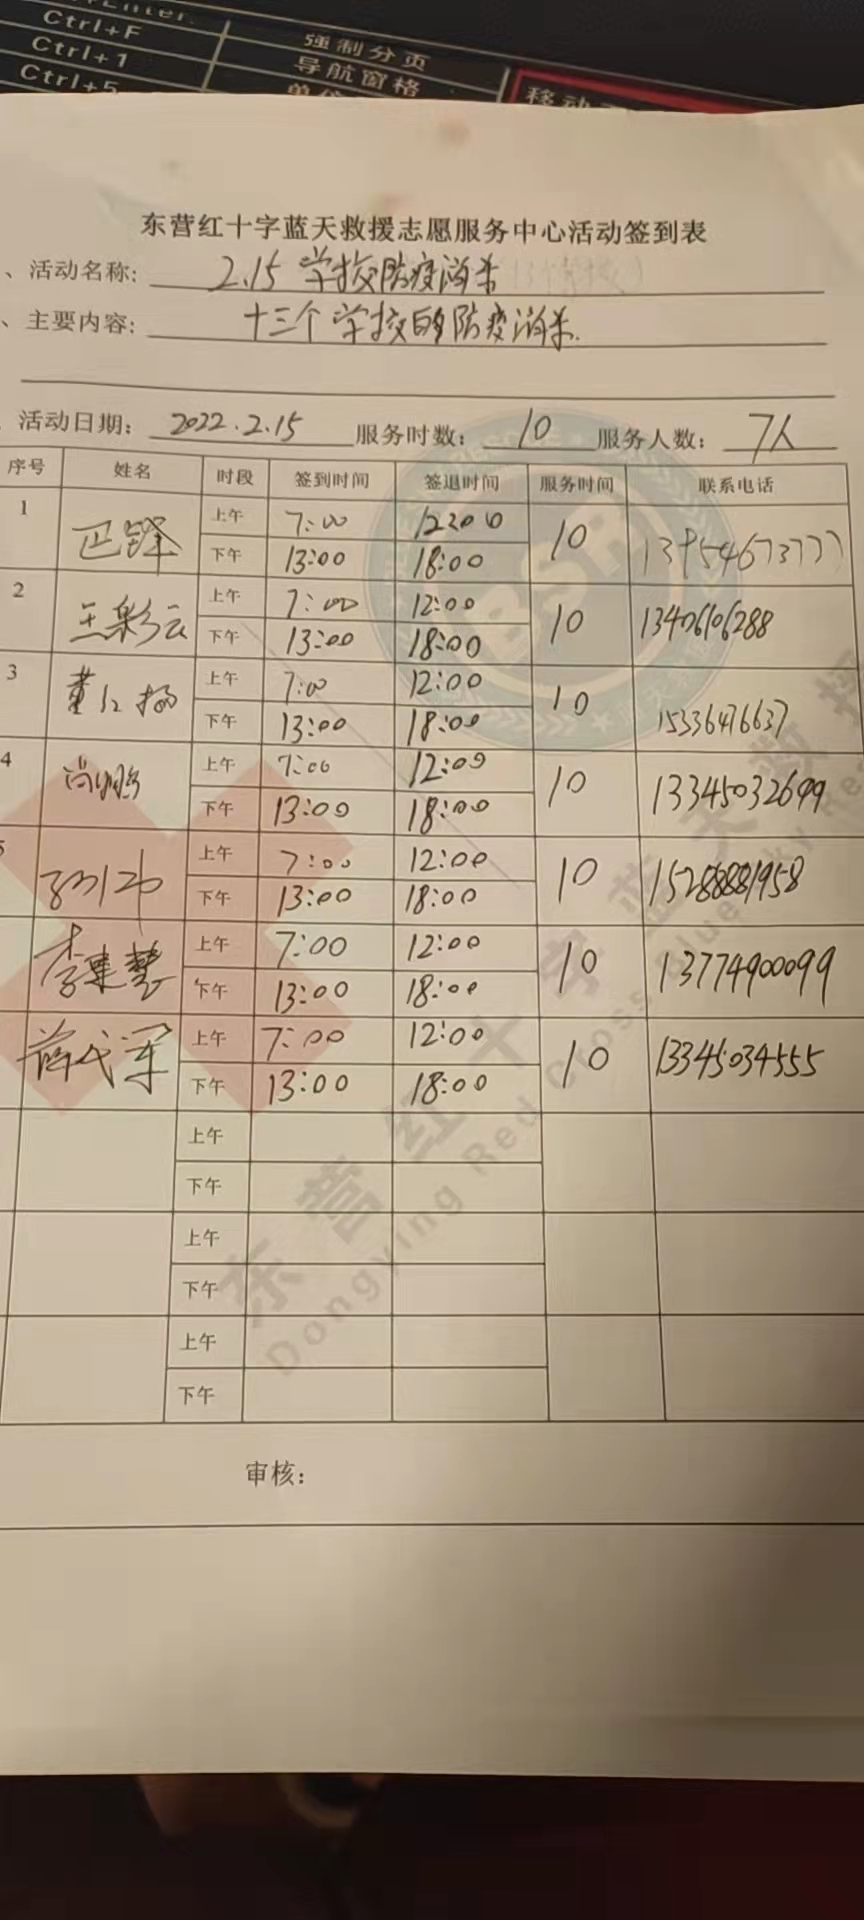 Ctrl+F
强制分页
Ctrl+1
导航窗格
Ctrl+5
移动
东营红十字蓝天救援志愿服务中心活动签到表
、活动名称: 2.15 学校防疫消杀
、主要内容: 十三个学校的防疫消杀.
活动日期: 2022.2.15 服务时数: 10 服务人数: 7人
序号 姓名 时段 签到时间 签退时间 服务时间 联系电话
1 巴锋 上午 7:00 12:00 10 13954673777
下午 13:00 18:00
2 王彩云 上午 7:00 12:00 10 13406106288
下午 13:00 18:00
3 董红扬 上午 7:00 12:00 10 15336476637
下午 13:00 18:00
4 上午 7:00 12:00 10 13345032699
下午 13:00 18:00
5 上午 7:00 12:00 10 15288881958
下午 13:00 18:00
李建慧 上午 7:00 12:00 10 13774900099
下午 13:00 18:00
薛成军 上午 7:00 12:00 10 13345034555
下午 13:00 18:00
上午
下午
上午
下午
上午
下午
审核:
BSR
东营红十字蓝天救援
Dongying Red Cross Blue Sky Re